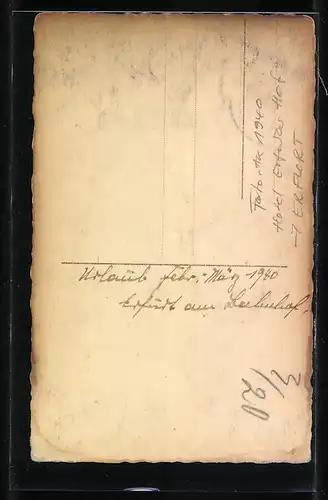 Foto-AK 1940
Hotel Erfurter Hof
→ ERFURT
Urlaub Febr.-März 1940
Erfurt am Bahnhof.
3/20